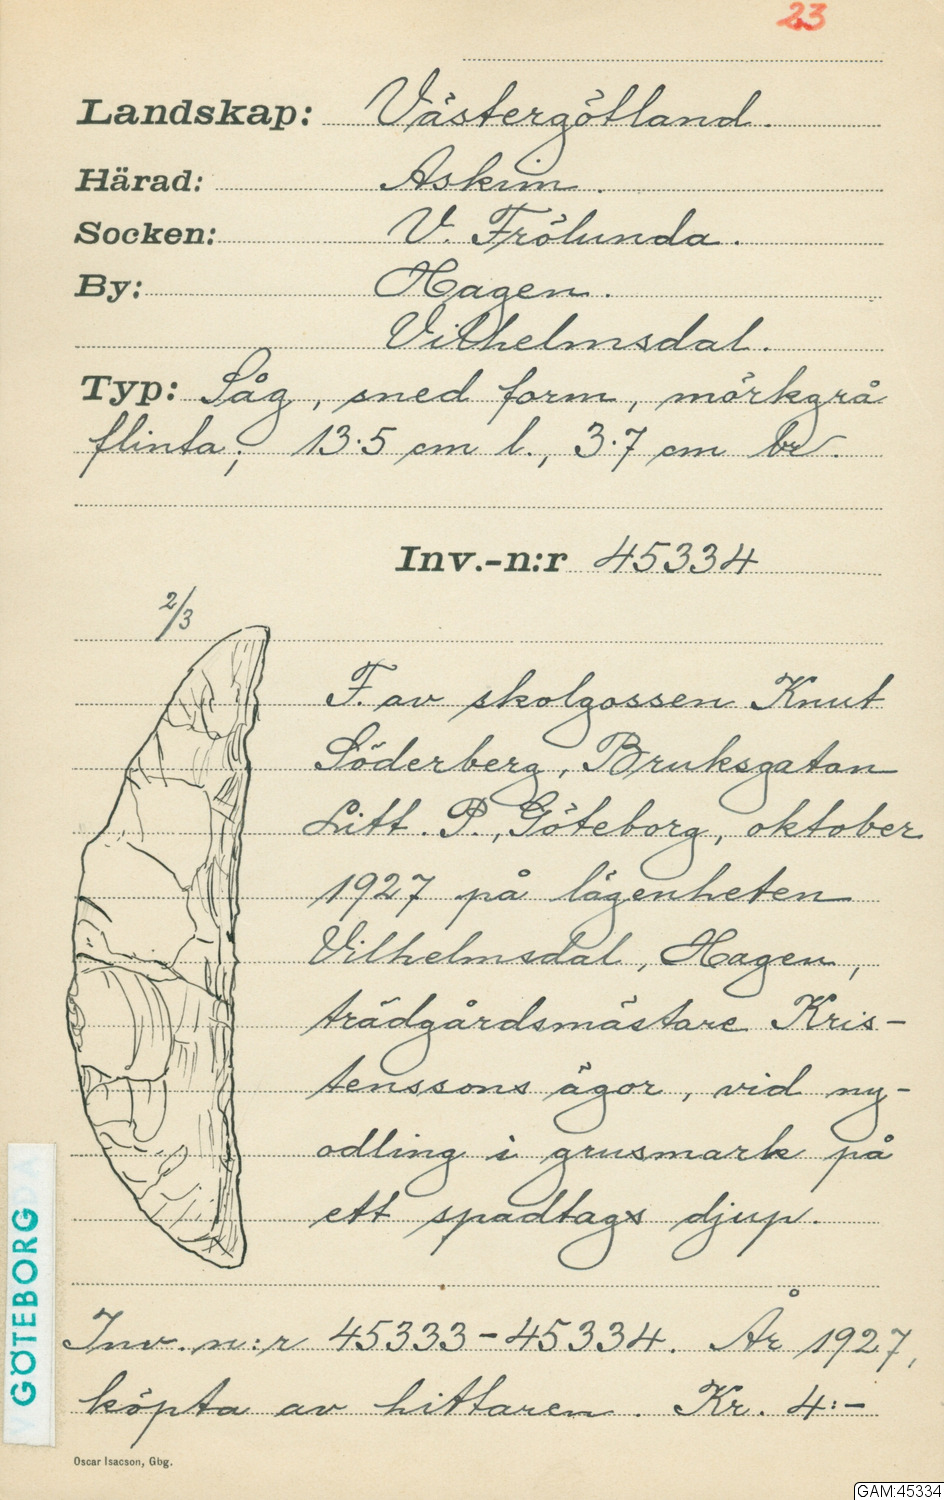 23
Landskap: Västergötland.
Härad: Askim.
Socken: V. Frölunda.
By: Hagen.
Vilhelmsdal.
Typ: Såg, sned form, mörkgrå
flinta; 13.5 cm l., 3.7 cm br.
Inv.-n:r 45334
2/3
F. av skolgossen Knut
Söderberg, Bruksgatan
Litt. P., Göteborg, oktober
1927 på lägenheten
Vilhelmsdal, Hagen,
trädgårdsmästare Kris-
tenssons ägor, vid ny-
odling i grusmark på
ett spadtags djup.
GÖTEBORG
Inv. n:r 45333-45334. År 1927,
köpta av hittaren. Kr. 4:-
Oscar Isacson, Gbg.
GAM:45334